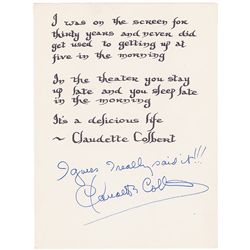 I was on the screen for
thirty years and never did
get used to getting up at
five in the morning
In the theater you stay
up late and you sleep late
in the morning
It's a delicious life
~ Claudette Colbert
I guess I really said it!!!
Claudette Colbert